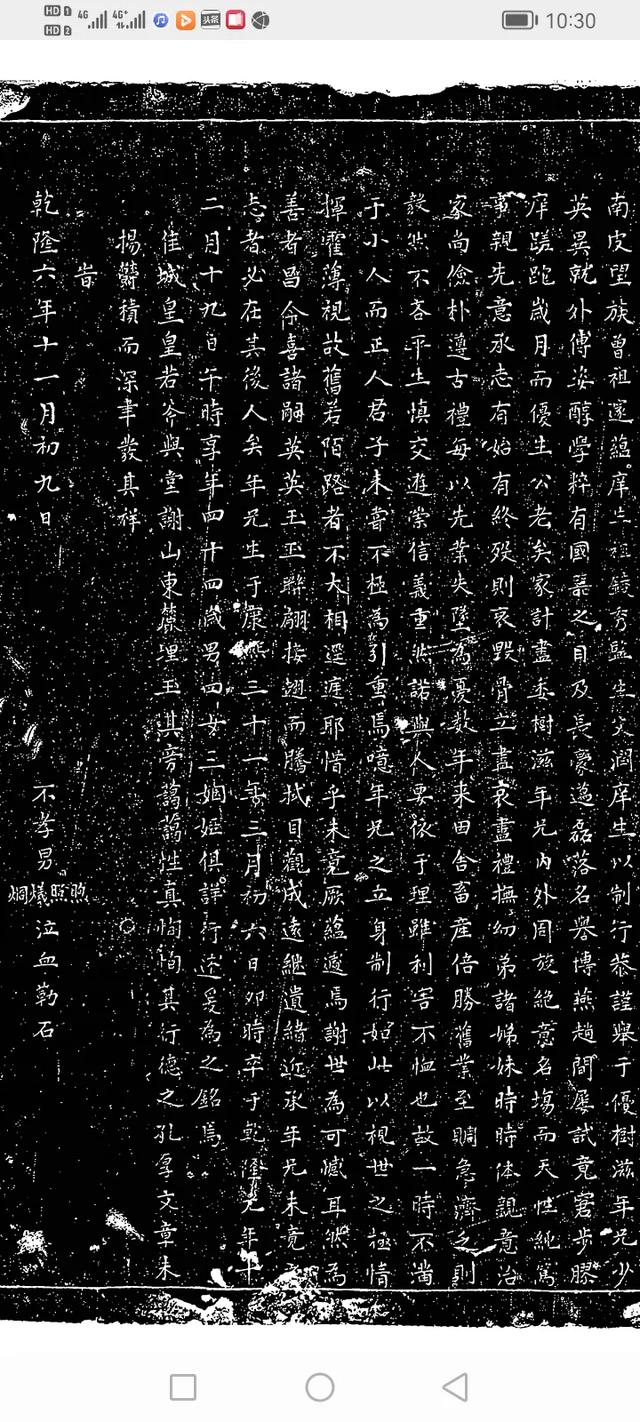 10:30
南皮望族曾祖邃蘊庠生祖鏡旁監生父潤庠生以制行恭謹舉于優樹滋年兄少
英異就外傅姿醇學粹有國器之目及長豪邁磊落名譽博燕趙間屢試竟窘步膠
庠蹉跎歲月而優生公老矣家計盡委樹滋年兄內外周旋絕意名場而天性純篤
事親先意承志有始有終歿則哀毀骨立盡哀盡禮撫幼弟諸姊妹時時体親意治
家尚儉朴遵古禮每以先業失墜為憂數年來田舍畜產倍勝舊業至賙急濟乏則
毅然不吝平生慎交遊崇信義重然諾與人要依于理雖利害不恤也故一時不滿
于小人而正人君子未嘗不極為引重焉噫年兄之立身制行如此以視世之極情
揮霍薄視故舊若陌路者不大相逕庭耶惜乎未竟厥蘊遽焉謝世為可憾耳然為
善者昌余喜諸嗣英英玉玉聯翩接翅而騰拭目觀成遠繼遺緒近承年兄未竟之
志者必在其後人矣年兄生于康熙三十一年三月初六日卯時卒于乾隆元年十
二月十九日午時享年四十四歲男四女三姻婭俱詳行述爰為之銘焉
佳城皇皇若斧與堂謝山東麓埋玉其旁藹藹性真恂恂其行德之孔厚文章未
揚欝積而深聿發其祥
旹
乾隆六年十一月初九日
不孝男
炯爔照煦
泣血勒石